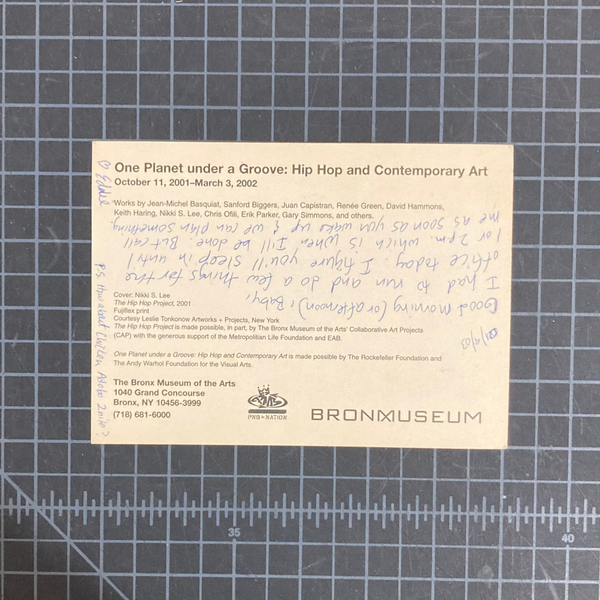 One Planet under a Groove: Hip Hop and Contemporary Art
October 11, 2001–March 3, 2002
Works by Jean-Michel Basquiat, Sanford Biggers, Juan Capistran, Renée Green, David Hammons,
Keith Haring, Nikki S. Lee, Chris Ofili, Erik Parker, Gary Simmons, and others.
Cover: Nikki S. Lee
The Hip Hop Project, 2001
Fujiflex print
Courtesy Leslie Tonkonow Artworks + Projects, New York
The Hip Hop Project is made possible, in part, by The Bronx Museum of the Arts' Collaborative Art Projects
(CAP) with the generous support of the Metropolitan Life Foundation and EAB.
One Planet under a Groove: Hip Hop and Contemporary Art is made possible by The Rockefeller Foundation and
The Andy Warhol Foundation for the Visual Arts.
The Bronx Museum of the Arts
1040 Grand Concourse
Bronx, NY 10456-3999
(718) 681-6000
PNB NATION
BRONXMUSEUM
Good morning (or afternoon), Baby,
I had to run and do a few things for the
office today. I figure you'll sleep in until
1 or 2pm. which is when I'll be done. But call
me as soon as you wake up & we can plan something.
♡ Eddie
P.S. How about Chicken Adobo 2nite?
35
40